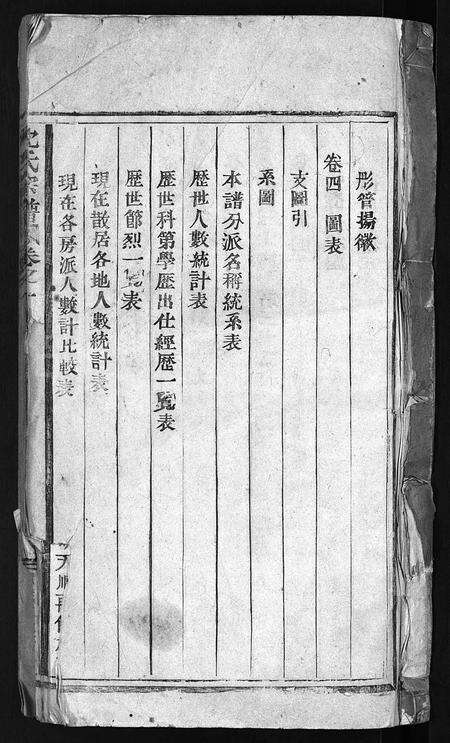 彤管揚徽
卷四　圖表
支圖引
系圖
本譜分派名稱統系表
歷世人數統計表
歷世科第學歷出仕經歷一覽表
歷世節烈一覽表
現在散居各地人數統計表
現在各房派人數計比較表
沈氏宗譜 卷之
天順